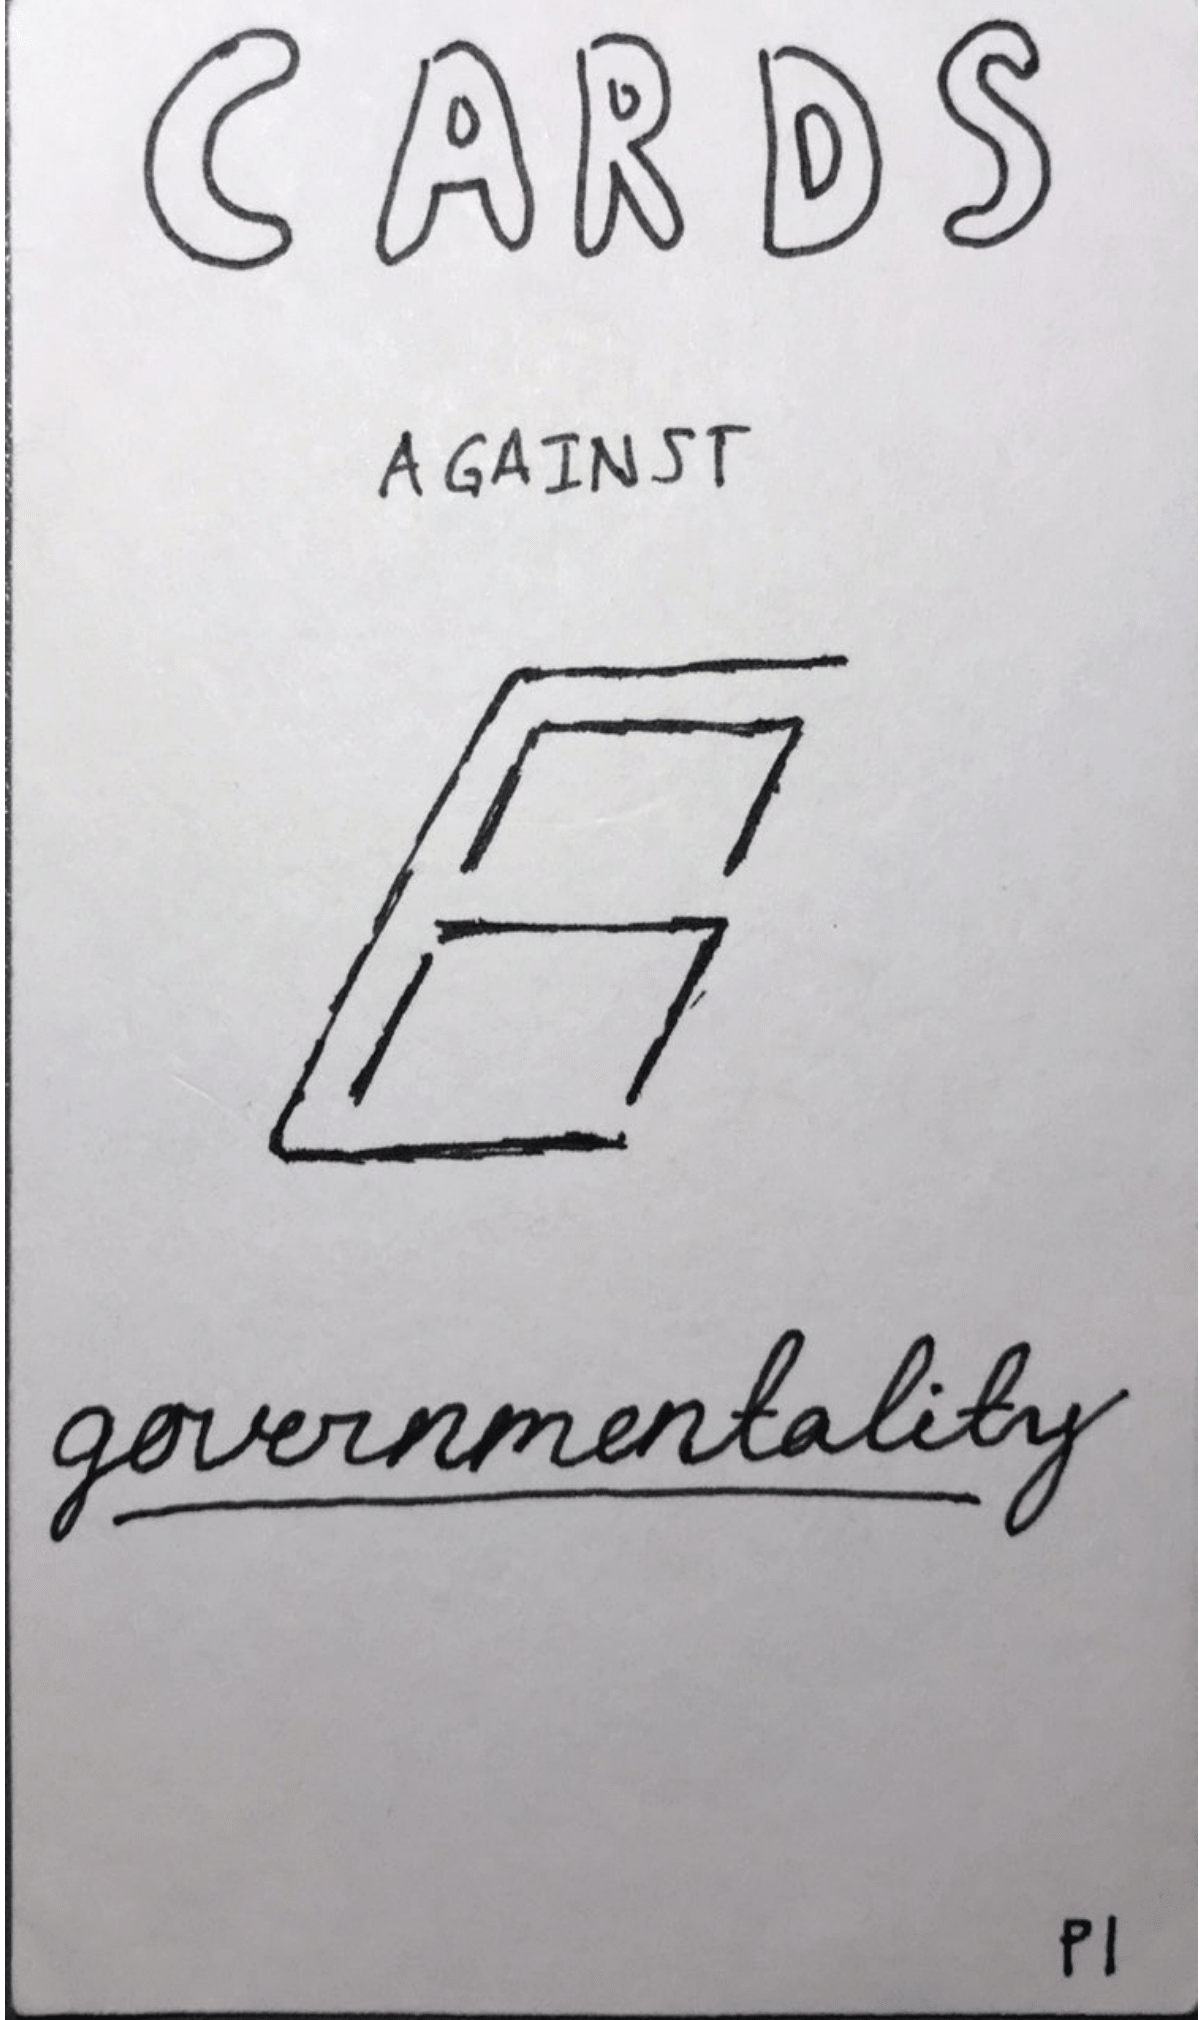 CARDS
AGAINST
governmentality
P1